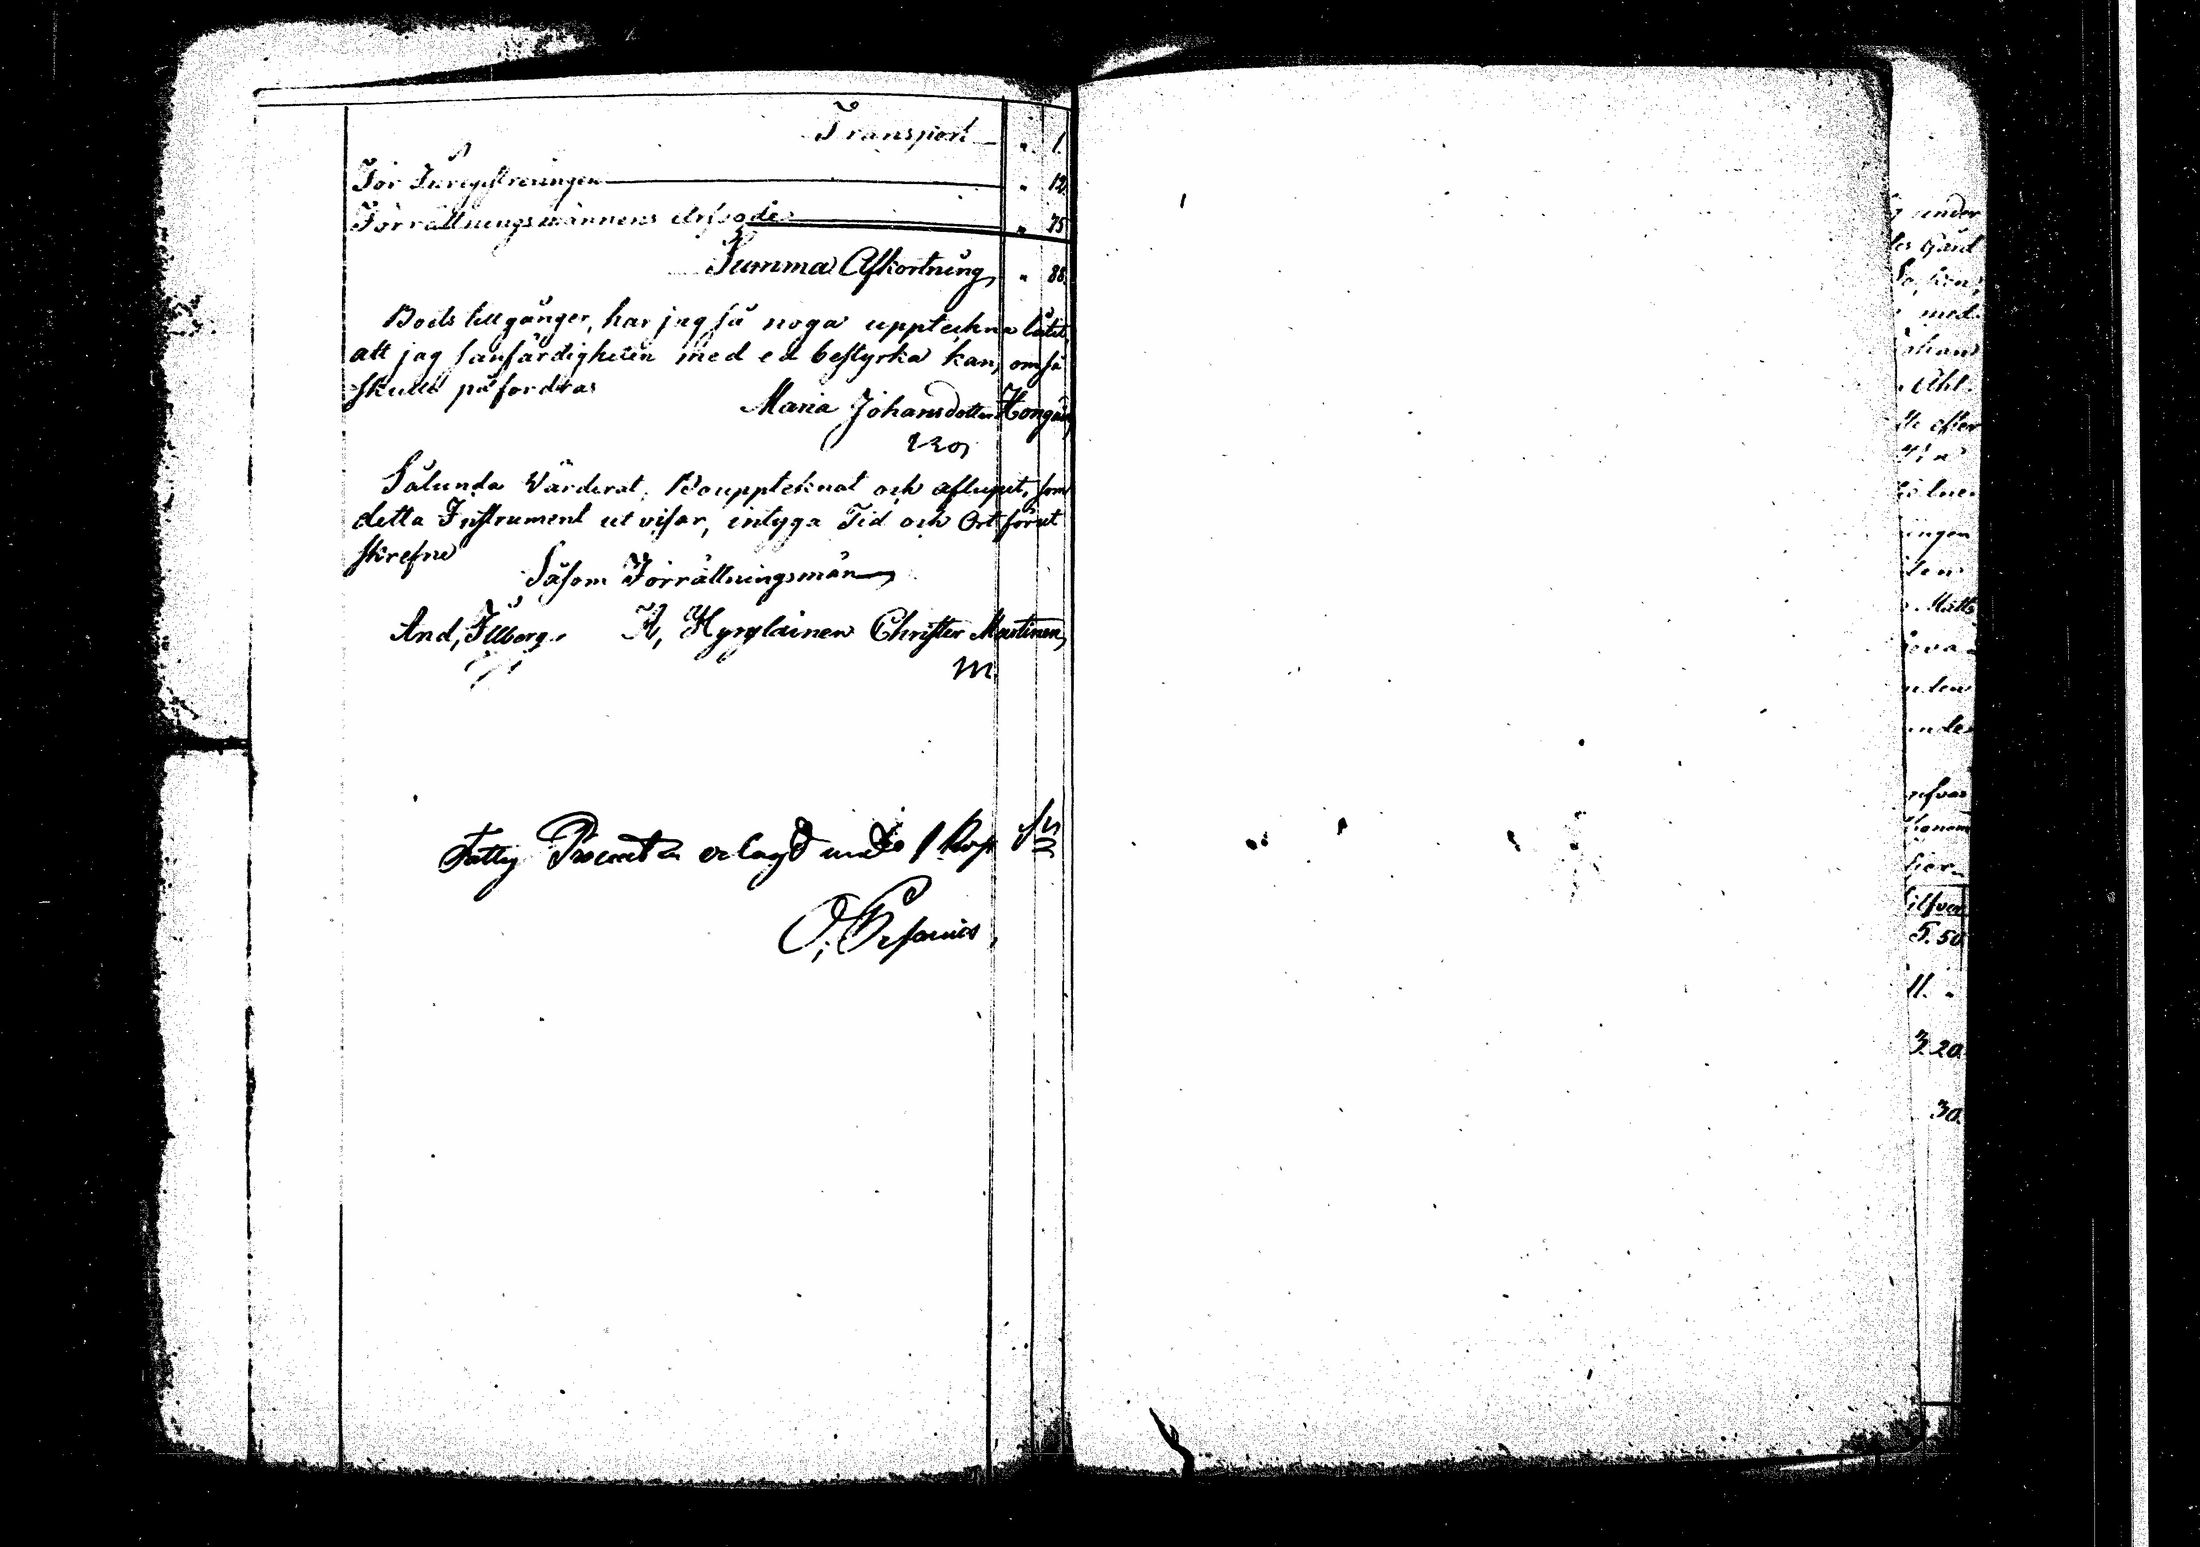 Transport " 1.
För Inregistreringen " 12.
Förrättningsmännens Arfvode " 75
Summa Afkortning, " 88.
Boets tillgånger, har jag så noga uppteckna låtit,
att jag sanfärdigheten med ed bestyrka kan, om så
skulle påfordras
Maria Johansdotter Hongain,
Sålunda Värderat, Bouppteknat och aflupit, som
detta Instrument utvisar, intyga Tid och Ort förut
skrefne
Såsom Förrättningsmän,
And, Illberg. H, Hyrylainen Christer Martinen,
m.
Fattig Procenten erlagd med 1 Kop Sr
O,
g under
les Gård
Sochen,
med
Johans
Ahl
te efter
ingen
Matts
ova
unden
refvar
Silfver
5. 50.
11. "
3. 20.
30.